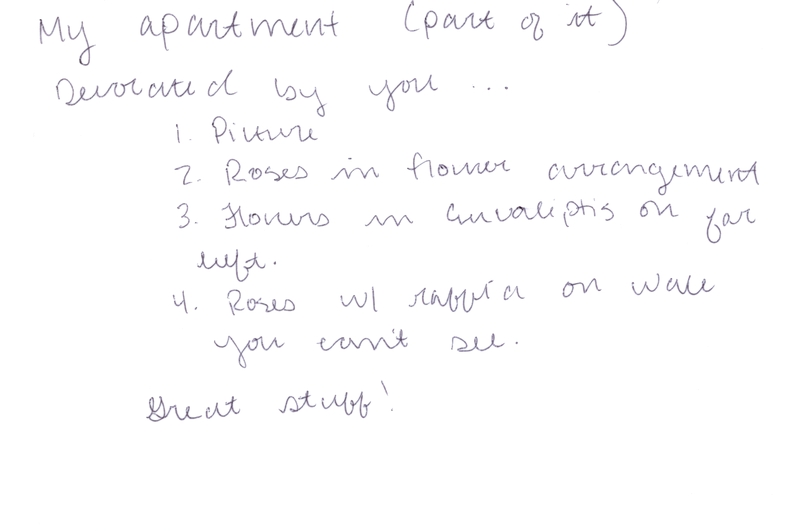 My apartment (part of it)
Decorated by you ...
1. Picture
2. Roses in flower arrangement
3. Flowers in Eucaliptis on far
left.
4. Roses w/ raffia on wall
you can't see.
Great stuff!